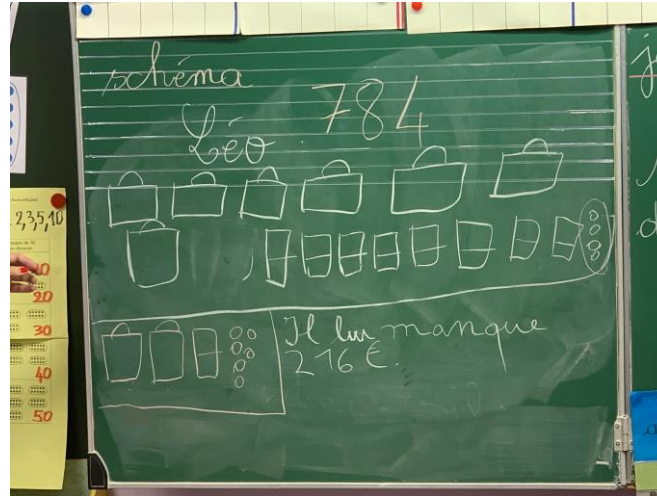 schéma
784
Léo
Il lui manque
216 €.
2,3,5,10
10
20
30
40
50